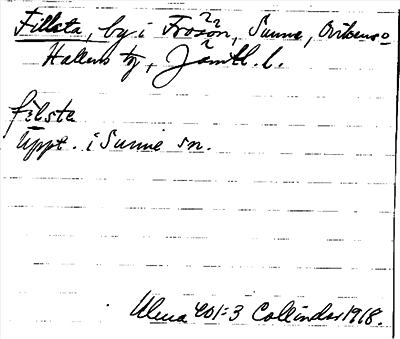 Fillsta, by i Frösön, Sunne, Oviken o
Hallens tg, Jämtl. l.
filsta
Uppt. i Sunne sn.
Ulma 401:3 Collinder 1918.